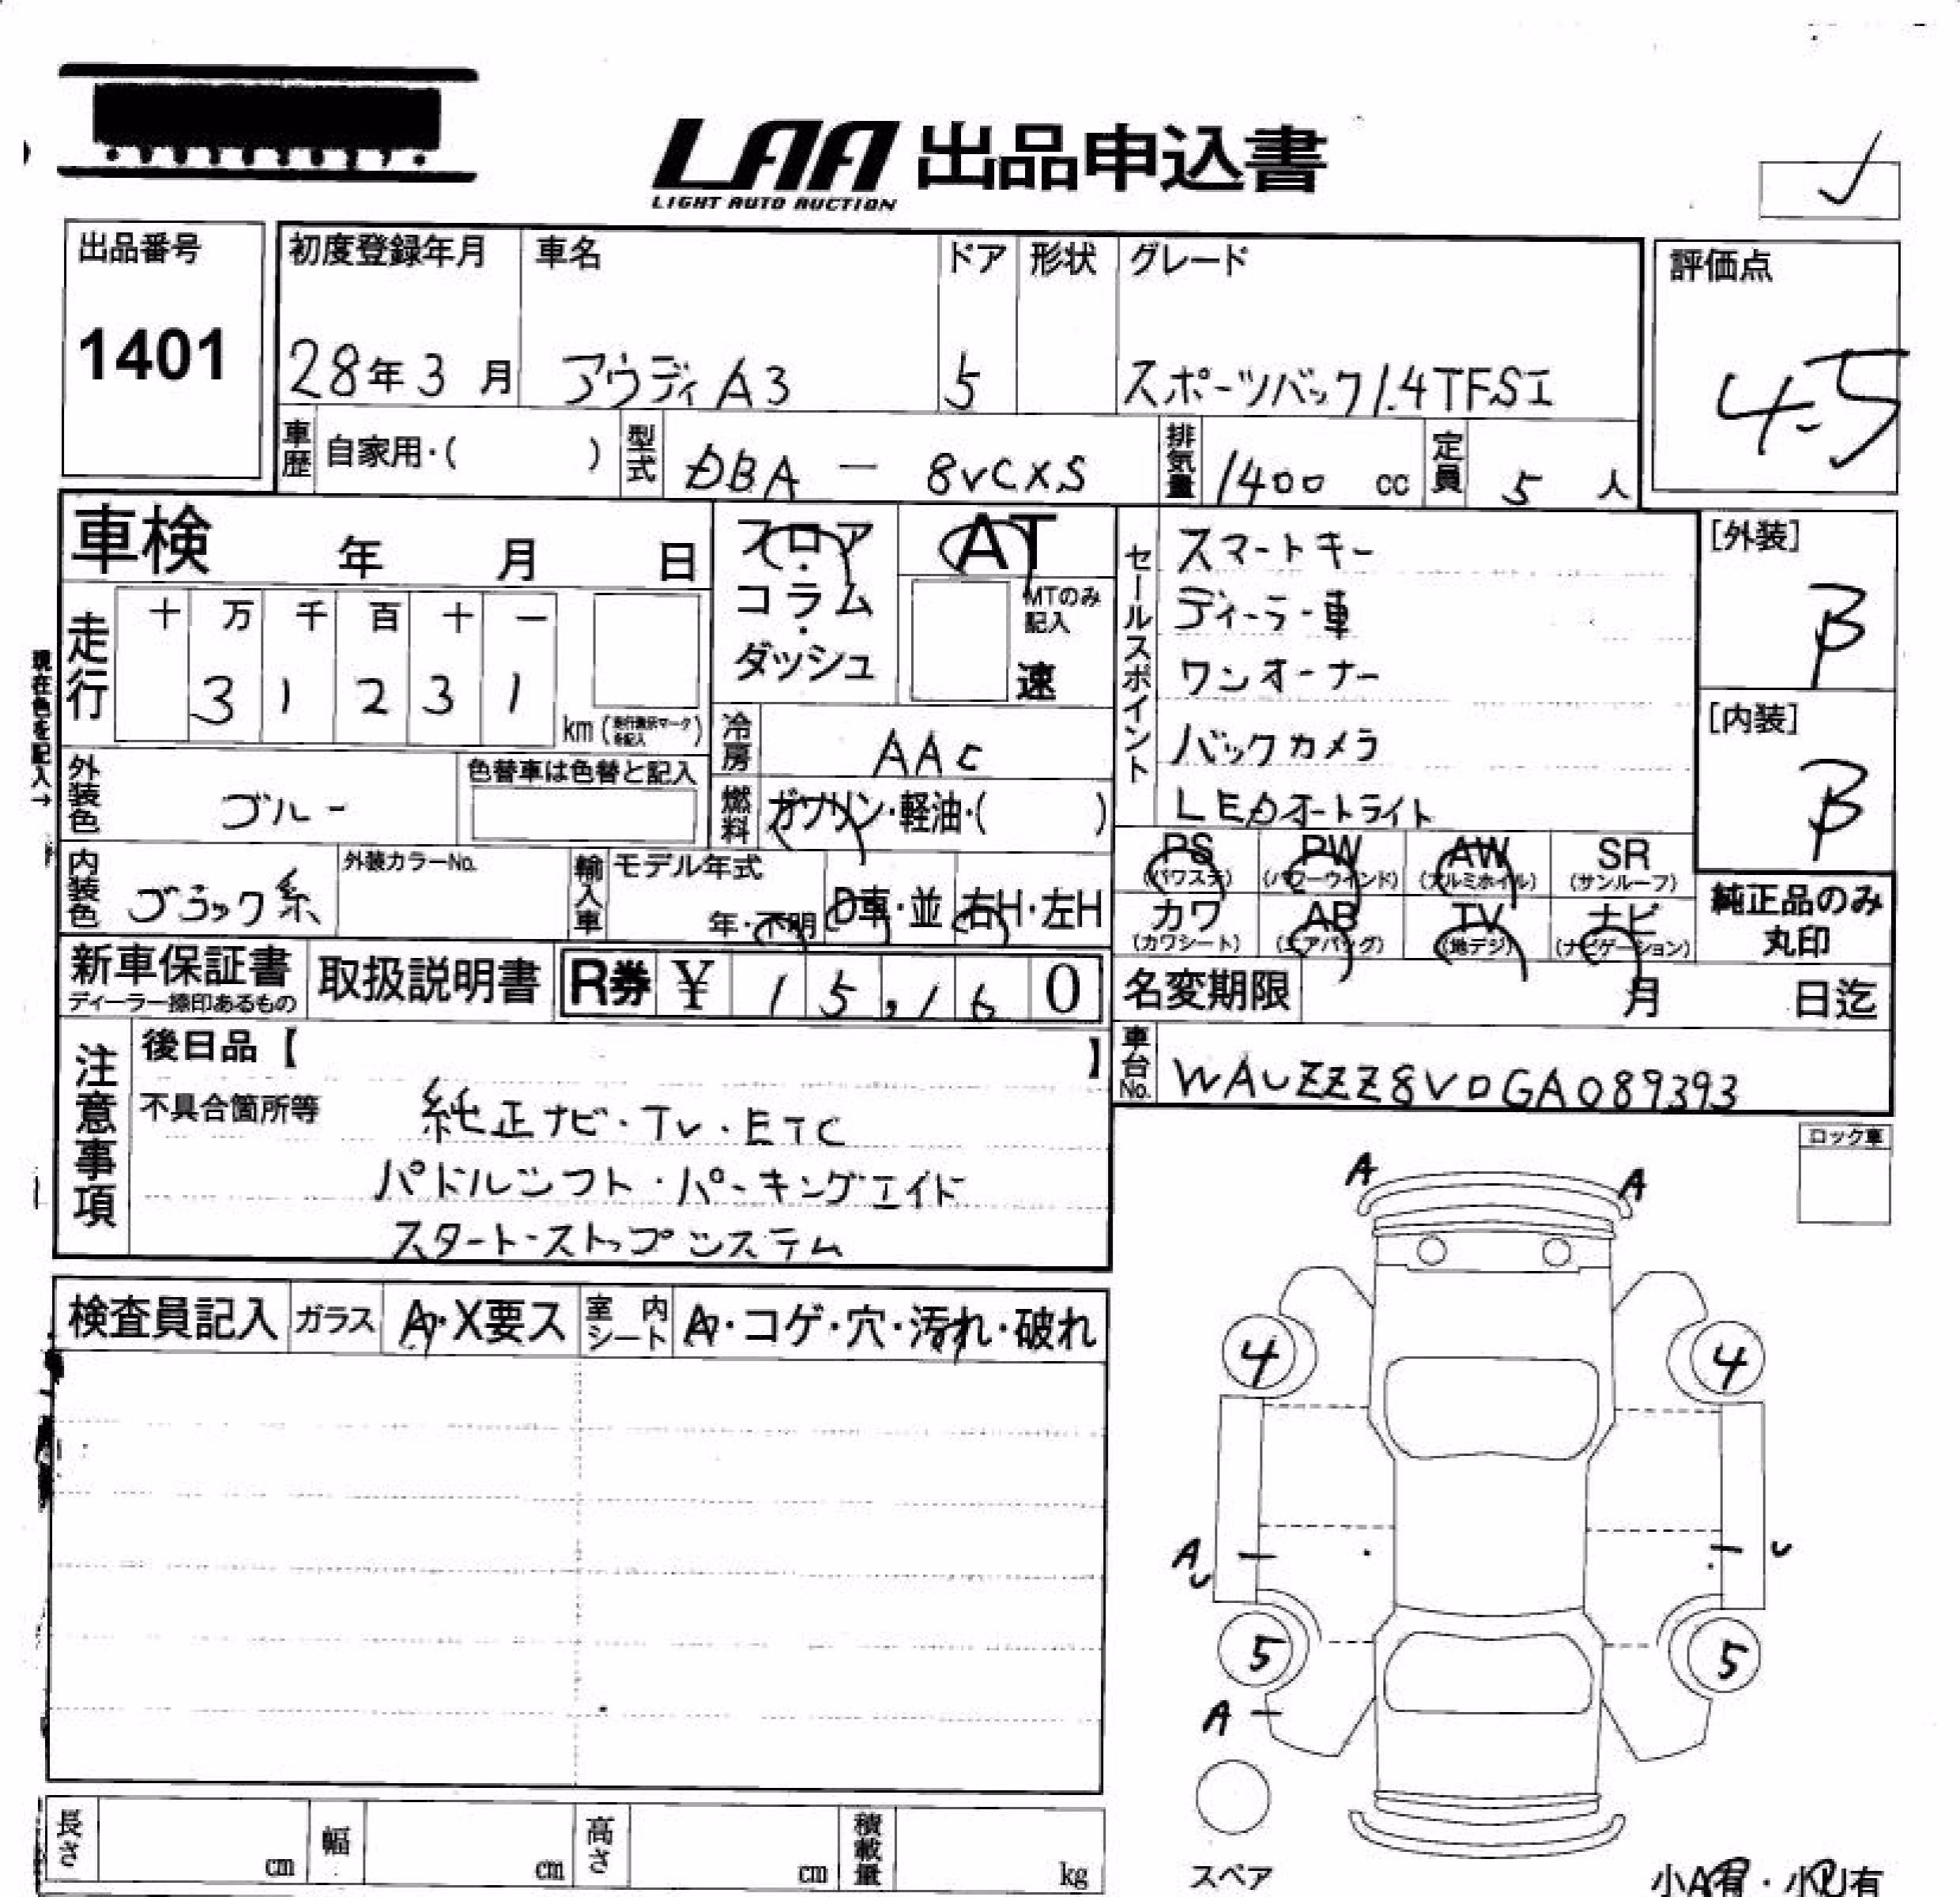 LAA 出品申込書
LIGHT AUTO AUCTION
出品番号
1401
初度登録年月 車名 ドア 形状 グレード
28年3月 アウディA3 5 スポーツバック1.4TFSI
評価点
4.5
車歴 自家用・( ) 型式 DBA - 8VCXS 排気量 1400 cc 定員 5 人
車検 年 月 日
フロア・コラム・ダッシュ
AT
MTのみ記入
速
セールスポイント
スマートキー
ディーラー車
ワンオーナー
バックカメラ
LEDオートライト
[外装]
B
[内装]
B
現在色を記入→
走行 十 万 千 百 十 一
3 1 2 3 1
km (走行表示マークを記入)
冷房 AAC
外装色 ブルー 色替車は色替と記入
燃料 ガソリン・軽油・( )
内装色 ブラック系 外装カラーNo.
輸入車 モデル年式 年・不明 D車・並 右H・左H
PS (パワステ) PW (パワーウインド) AW (アルミホイル) SR (サンルーフ)
カワ (カワシート) AB (エアバッグ) TV (地デジ) ナビ (ナビゲーション)
純正品のみ
丸印
新車保証書 取扱説明書 R券 ¥ 15,160
ディーラー捺印あるもの
名変期限 月 日迄
車台No. WAUZZZ8V0GA089393
注意事項
後日品【 】
不具合箇所等 純正ナビ・TV・ETC
パドルシフト・パーキングエイド
スタート・ストップシステム
ロック車
検査員記入 ガラス A・X要ス 室内シート A・コゲ・穴・汚れ・破れ
A A
4 4
A U U
5 5
A
スペア
長さ cm 幅 cm 高さ cm 積載量 kg
小A有・小U有